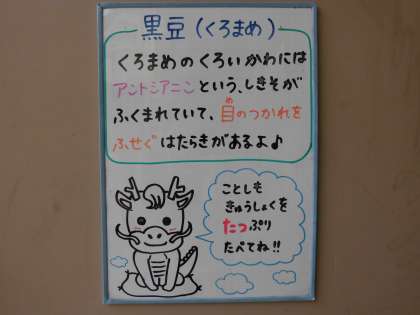 黒豆(くろまめ)
くろまめのくろいかわには
アントシアニンという、しきそが
ふくまれていて、目のつかれを
め
ふせぐはたらきがあるよ♪
ことしも
きゅうしょくを
たっぷり
たべてね!!